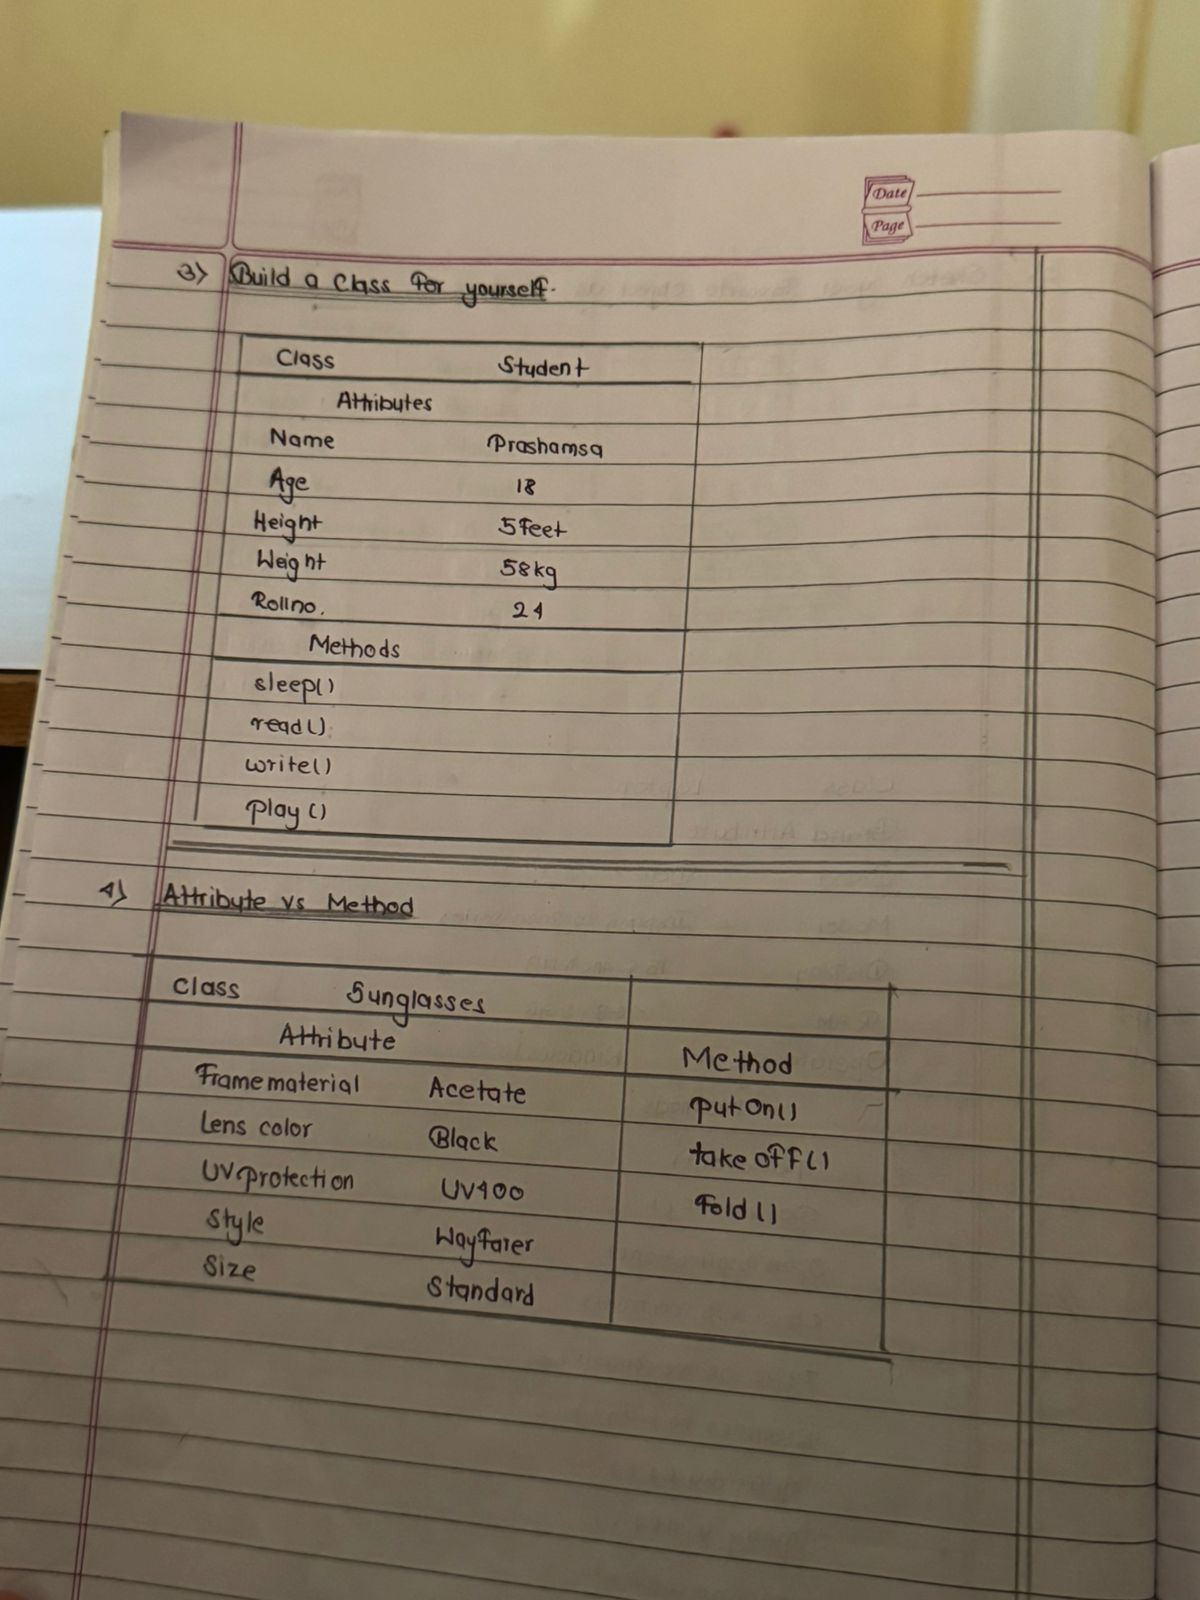 Date
Page
3) Build a Class for yourself.
Class Student
Attributes
Name Prashamsa
Age 18
Height 5feet
Weight 58kg
Rollno. 24
Methods
sleep()
read()
write()
play()
4) Attribute vs Method
Class Sunglasses
Attribute Method
Frame material Acetate put On()
Lens color Black take off()
UV protection UV400 fold()
Style Wayfarer
Size Standard